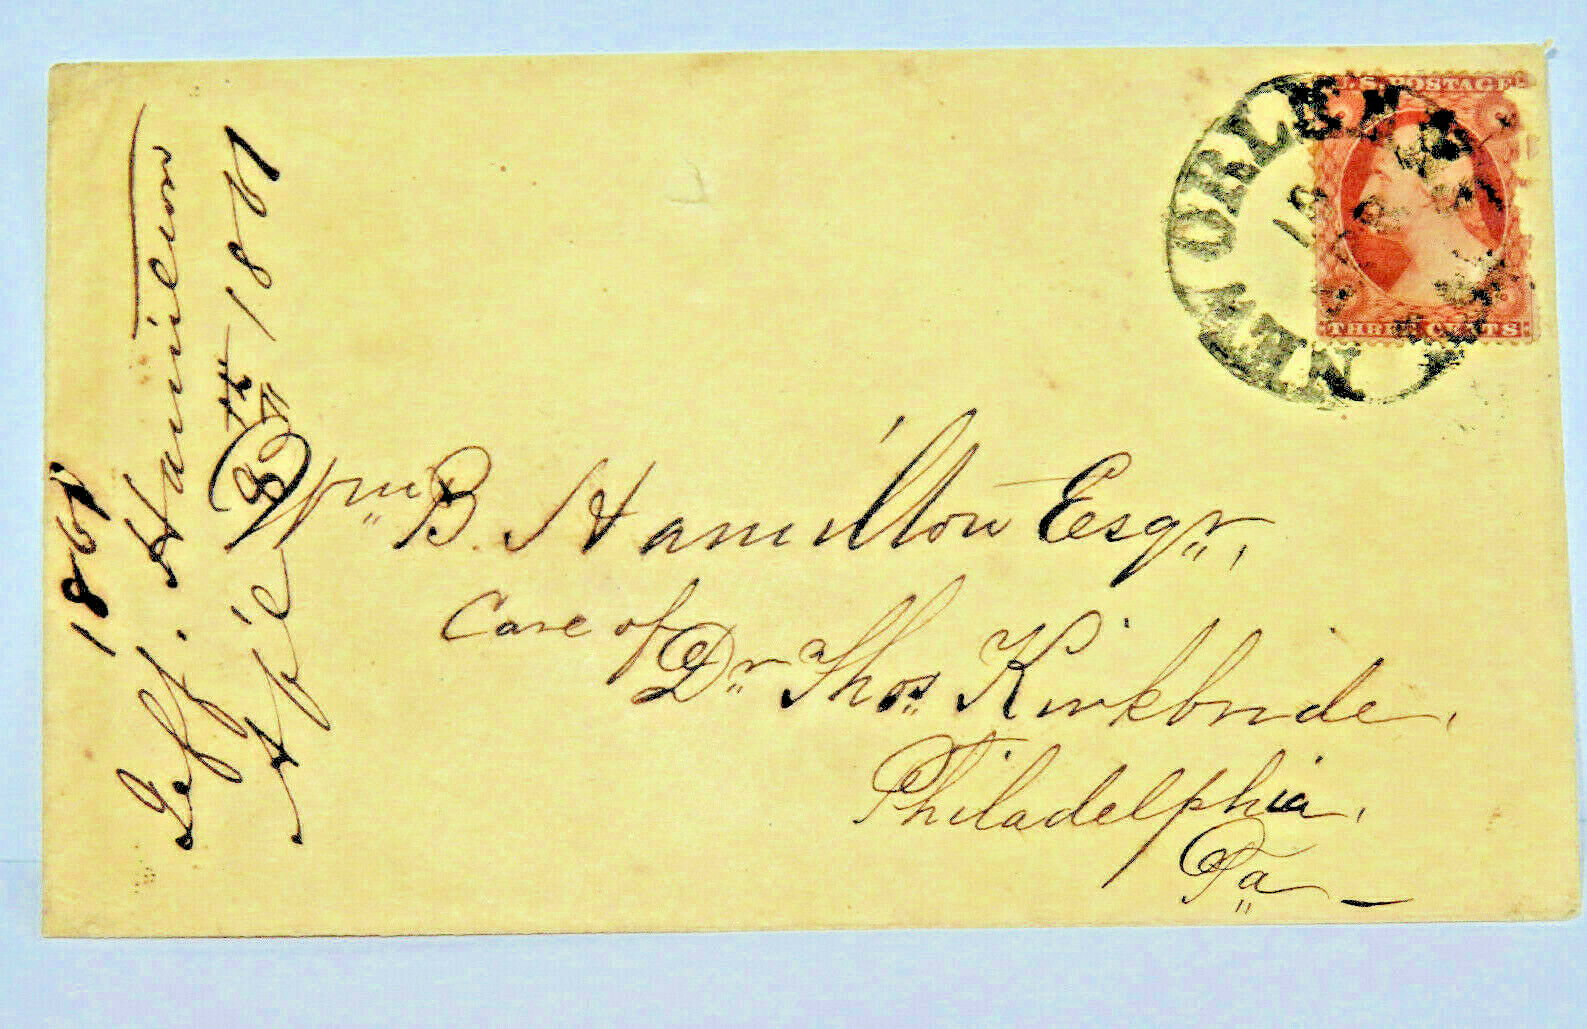 U.S. POSTAGE
THREE CENTS
NEW ORLEANS
Wm B. Hamilton Esqr,
Care of
Dr Thos Kirkbride,
Philadelphia,
Pa
1861
Jeff. Hamilton
8th 1861